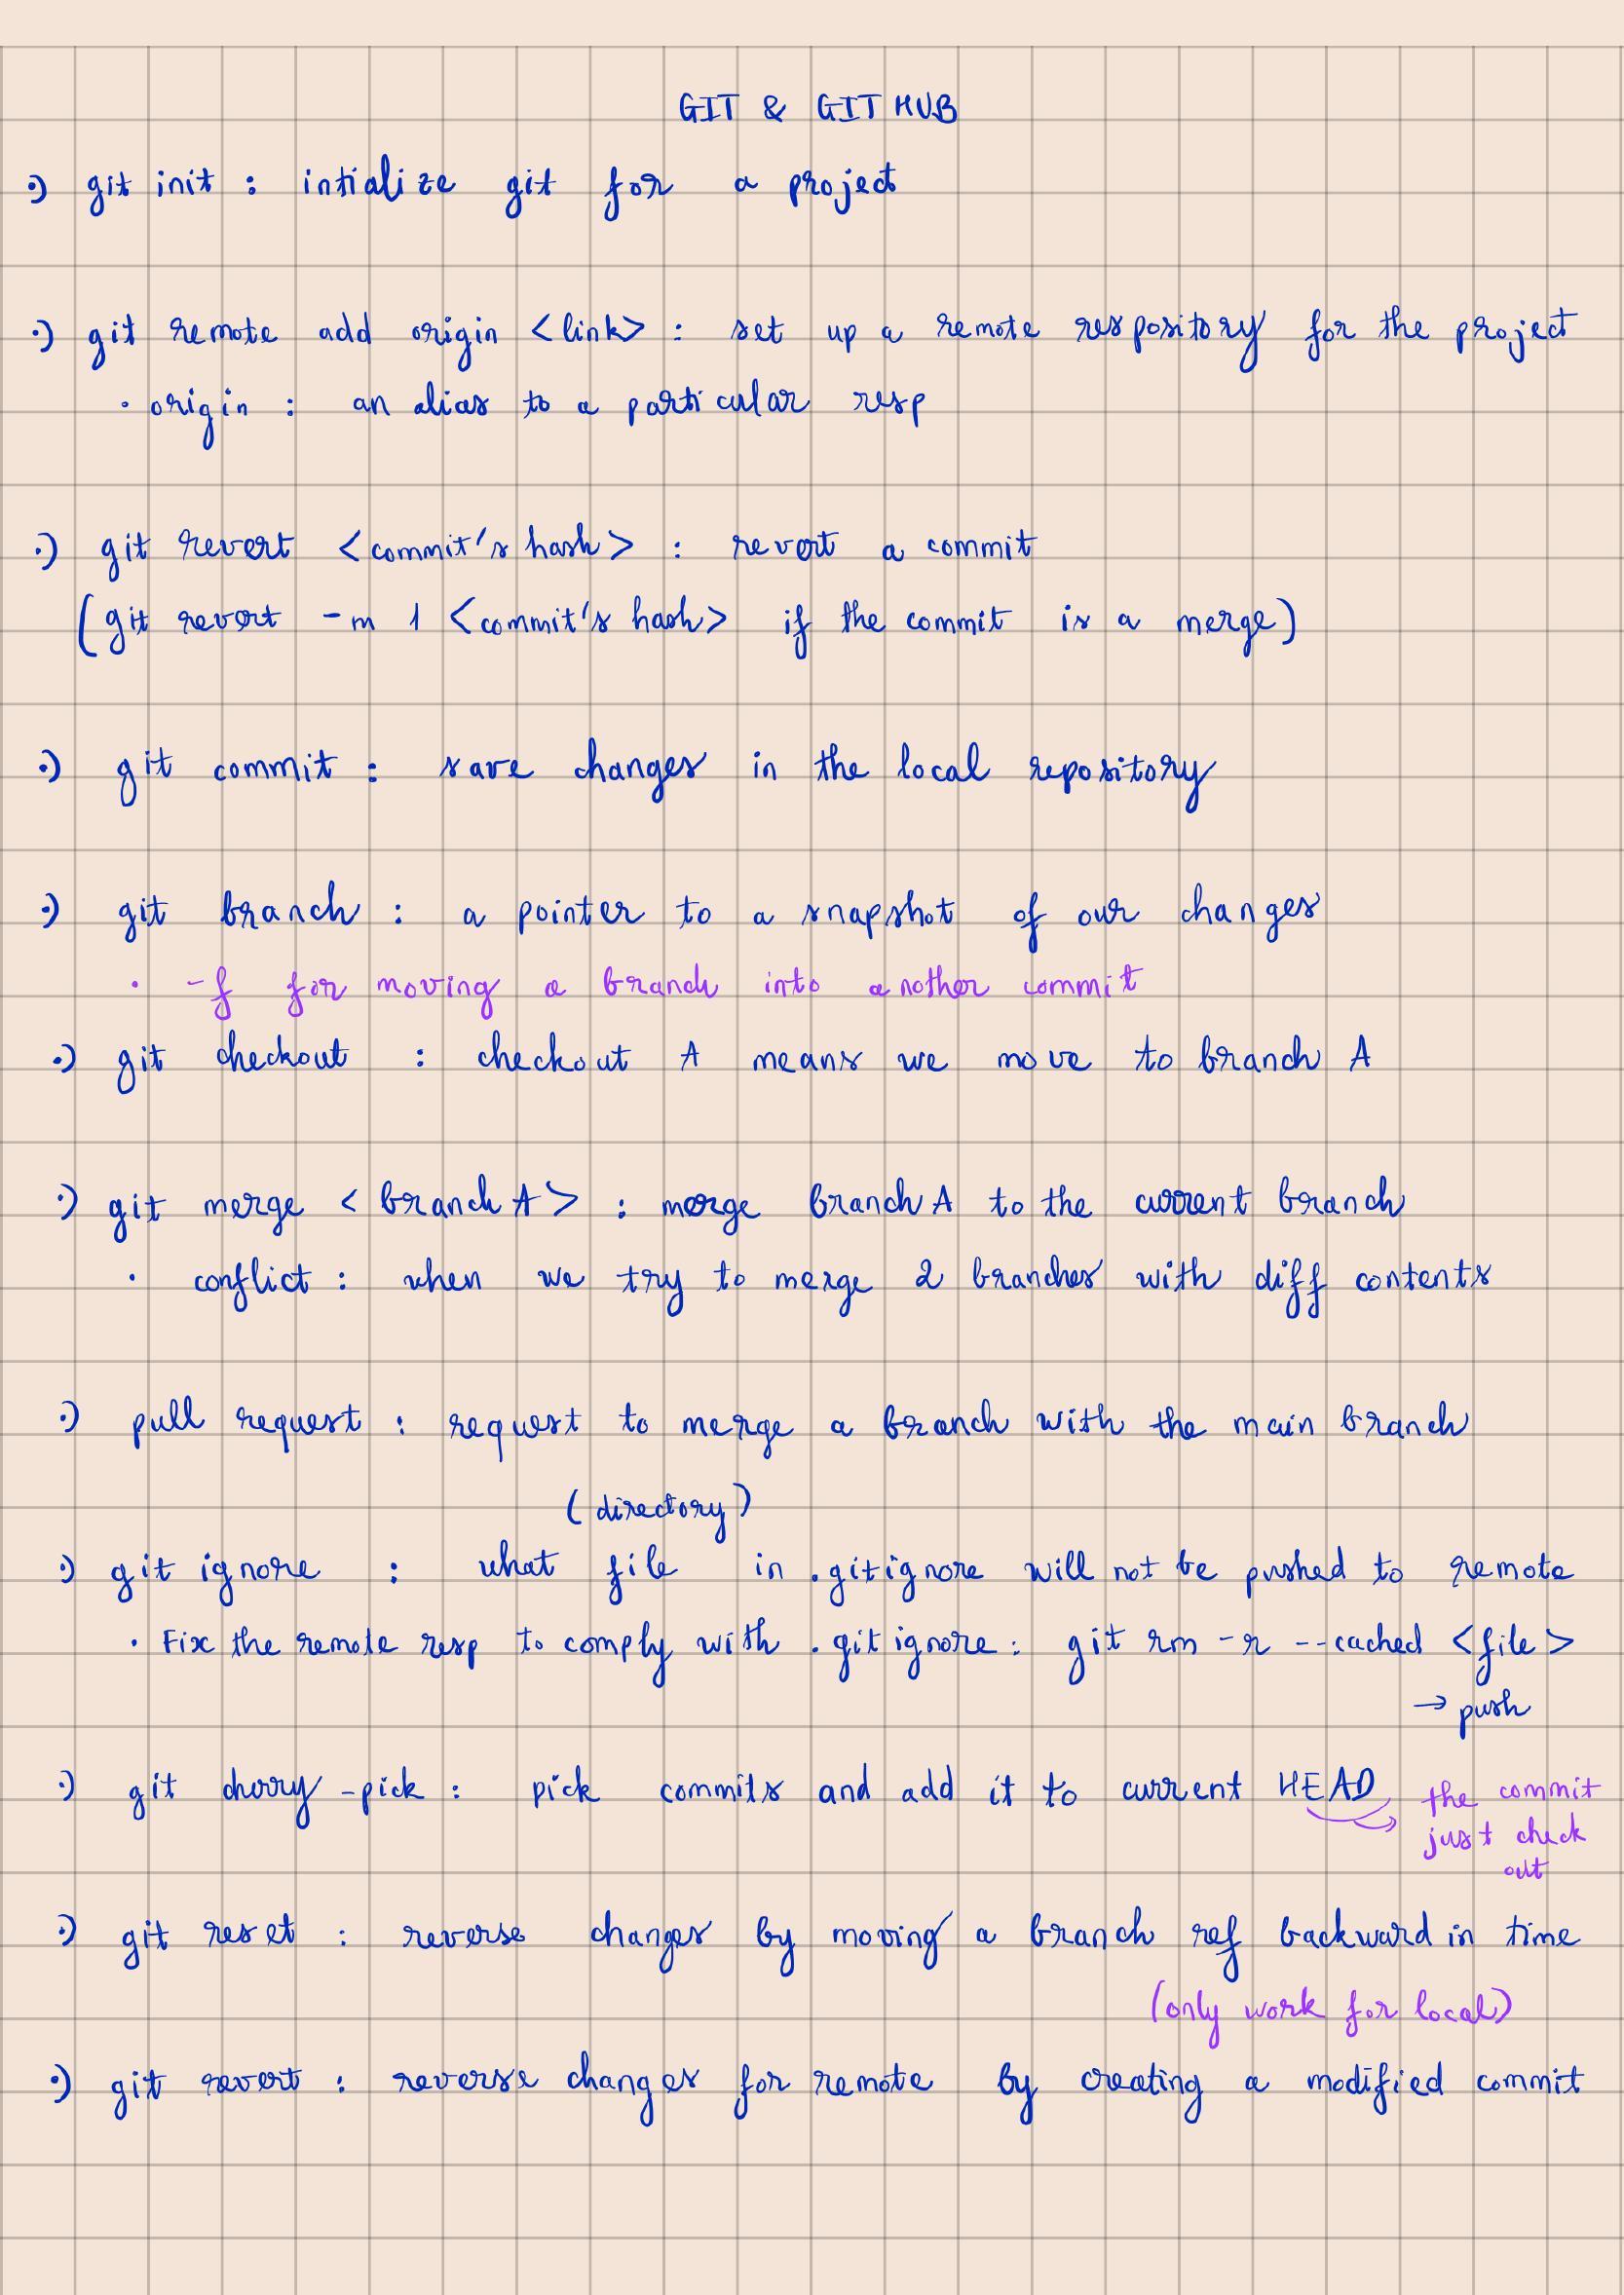 GIT & GIT HUB
·) git init : intialize git for a project
·) git remote add origin <link> : set up a remote respository for the project
· origin : an alias to a particular resp
·) git revert <commit's hash> : revert a commit
(git revert -m 1 <commit's hash> if the commit is a merge)
·) git commit : save changes in the local repository
·) git branch : a pointer to a snapshot of our changes
· -f for moving a branch into another commit
·) git checkout : checkout A means we move to branch A
·) git merge <branch A> : merge branch A to the current branch
· conflict : when we try to merge 2 branches with diff contents
·) pull request : request to merge a branch with the main branch
(directory)
·) git ignore : what file in .gitignore will not be pushed to remote
· Fix the remote resp to comply with .gitignore : git rm -r --cached <file>
→ push
·) git cherry-pick : pick commits and add it to current HEAD
the commit
just check
out
·) git reset : reverse changes by moving a branch ref backward in time
(only work for local)
·) git revert : reverse changes for remote by creating a modified commit